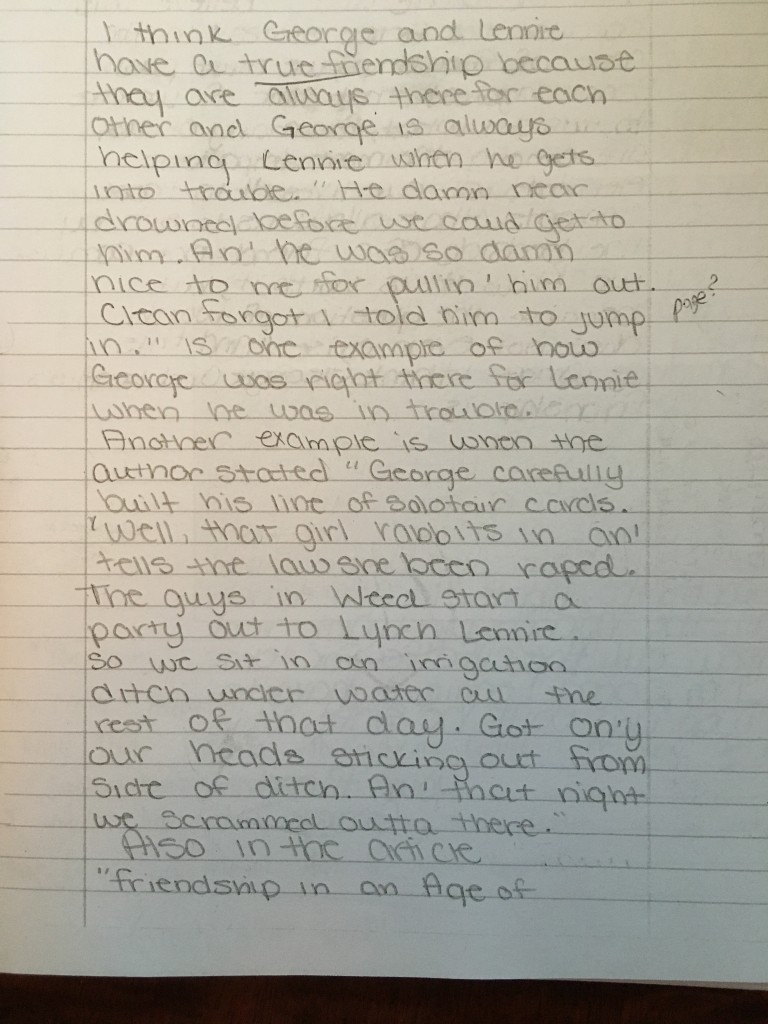 I think George and Lennie
have a true friendship because
they are always there for each
other and George is always
helping Lennie when he gets
into trouble. "He damn near
drowned before we could get to
him. An' he was so damn
nice to me for pullin' him out.
Clean forgot I told him to jump page?
in." is one example of how
George was right there for Lennie
when he was in trouble.
Another example is when the
author stated "George carefully
built his line of solotair cards.
"Well, that girl rabbits in an'
tells the law she been raped.
The guys in Weed start a
party out to Lynch Lennie.
So we sit in an irrigation
ditch under water all the
rest of that day. Got on'y
our heads sticking out from
side of ditch. An' that night
we scrammed outta there."
Also in the article
"friendship in an Age of